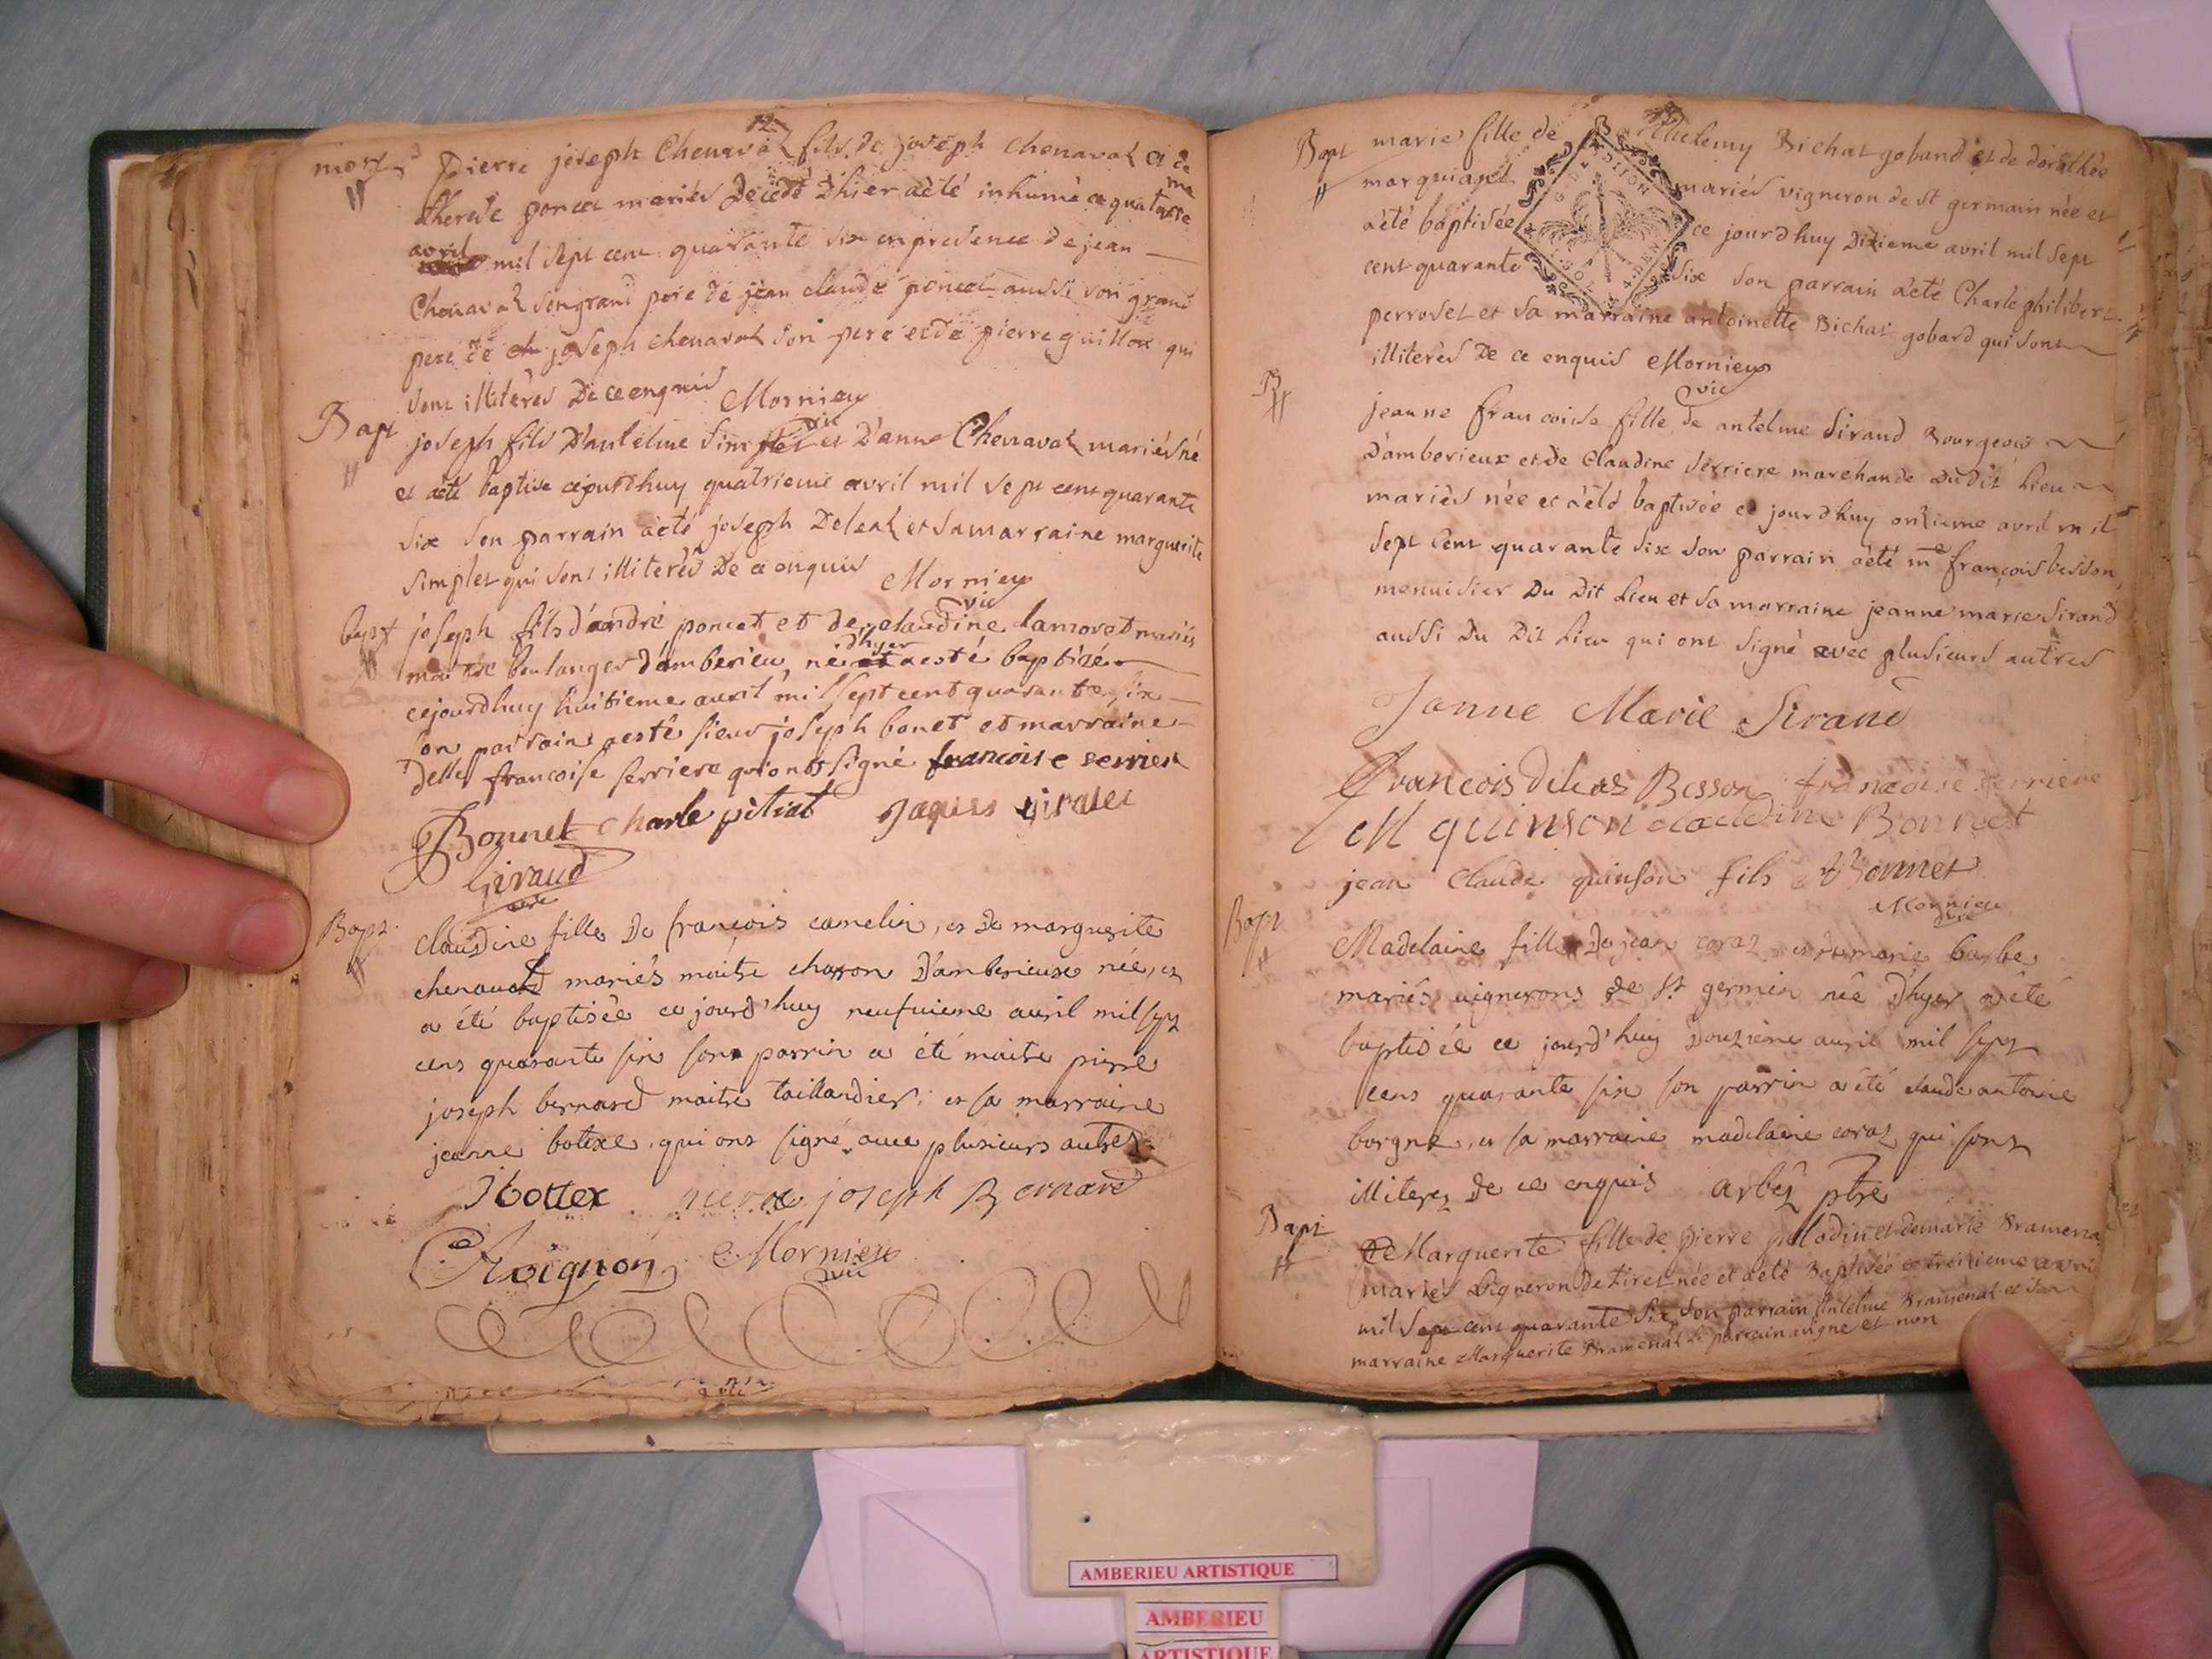 12
mort Pierre joseph Chenaval fils de joseph chenaval et de
therese poncet mariés Decedé D'hier a été inhumé ce quatorze me
avril mil sept cent quarante six en presence de jean
Chenaval son grand pere de jean claude poncet aussi son grand
pere de joseph chenaval son pere et de pierre guillot qui
sont illiterés De ce enquis Mornieu
vic
Bapt joseph fils D'antelme Simplet et D'anne Chenaval mariés né
et a été baptise cejourdhuy quatrieme avril mil sept cent quarante
six son parrain a été joseph Deleal et sa marraine marguerite
simplet qui sont illiterés De ce enquis Mornieu
vic
bapt joseph fils d'andré poncet et de claudine lamoret mariés
maitre boulanger d'amberieu, né d'hyer a esté baptizé
cejourdhuy huitieme avril mil sept cent quarante six
son parrain a esté sieur joseph bonet et marraine
Delle francoise serriere qui ont signé francoise serriere
Bonnet charle petiat Jaques girales
Giraud
curé
Bapt claudine fille De françois camelin, et De marguerite
chenaval mariés maitre charron D'amberieux née, et
a été baptisée ce jourd'huy neufuieme auril mil sept
cens quarante six son parrin a été maitre pierre
joseph bernard maitre taillandier, et sa marraine
jeanne botexe, qui ont signé auec plusieurs autres
J bottex pierre joseph Bernard
Roignon Mornieu
vic
Bapt marie fille de Barthelemy Bichat goband et de dorothée
marquiand mariés vigneron de st germain née et
a été baptisée ce jourdhuy Dixieme avril mil sept
cent quarante six son parrain a été Charle philibert
perroset et sa marraine antoinette Bichat gobard qui sont
illiterés De ce enquis Mornieu
vic
B jeanne francoise fille de antelme Sirand Bourgeois
D'amberieux et de Claudine serriere marchande Dudit Lieu
mariés née et a été baptisée ce jourdhuy onzieme avril mil
sept Cent quarante six son parrain a été me françois besson
menuisier Du Dit Lieu et sa marraine jeanne marie Sirand
aussi Du Dit Lieu qui ont signé avec plusieurs autres
Janne Marie Sirand
Francois Delias Besson francoise serriere
M quinson claudine Bonnet
jean Claude quinson fils Bonnet
Mornieu
vic
Bapt Madelaine fille De jean coraz et de marie barbe
mariés uignerons de St germain née D'hyer a été
baptisée ce jourd'huy Douzieme auril mil sept
cens quarante six son parrin a été claude antoine
borgne, et sa marraine madelaine coraz qui sont
illiterez De ce enquis arbez ptre
Bapt Marguerite fille de pierre pallodin et de marie Bramena
mariés vigneron De tiret née et a été Baptisée ce treizieme avri
mil sept cent quarante six son parrain Antelme Bramenal et sa
marraine Marguerite Bramenal le parrain a signé et non
G. D. LEDITION
SOL 4. DEN
AMBERIEU ARTISTIQUE
AMBERIEU
ARTISTIQUE